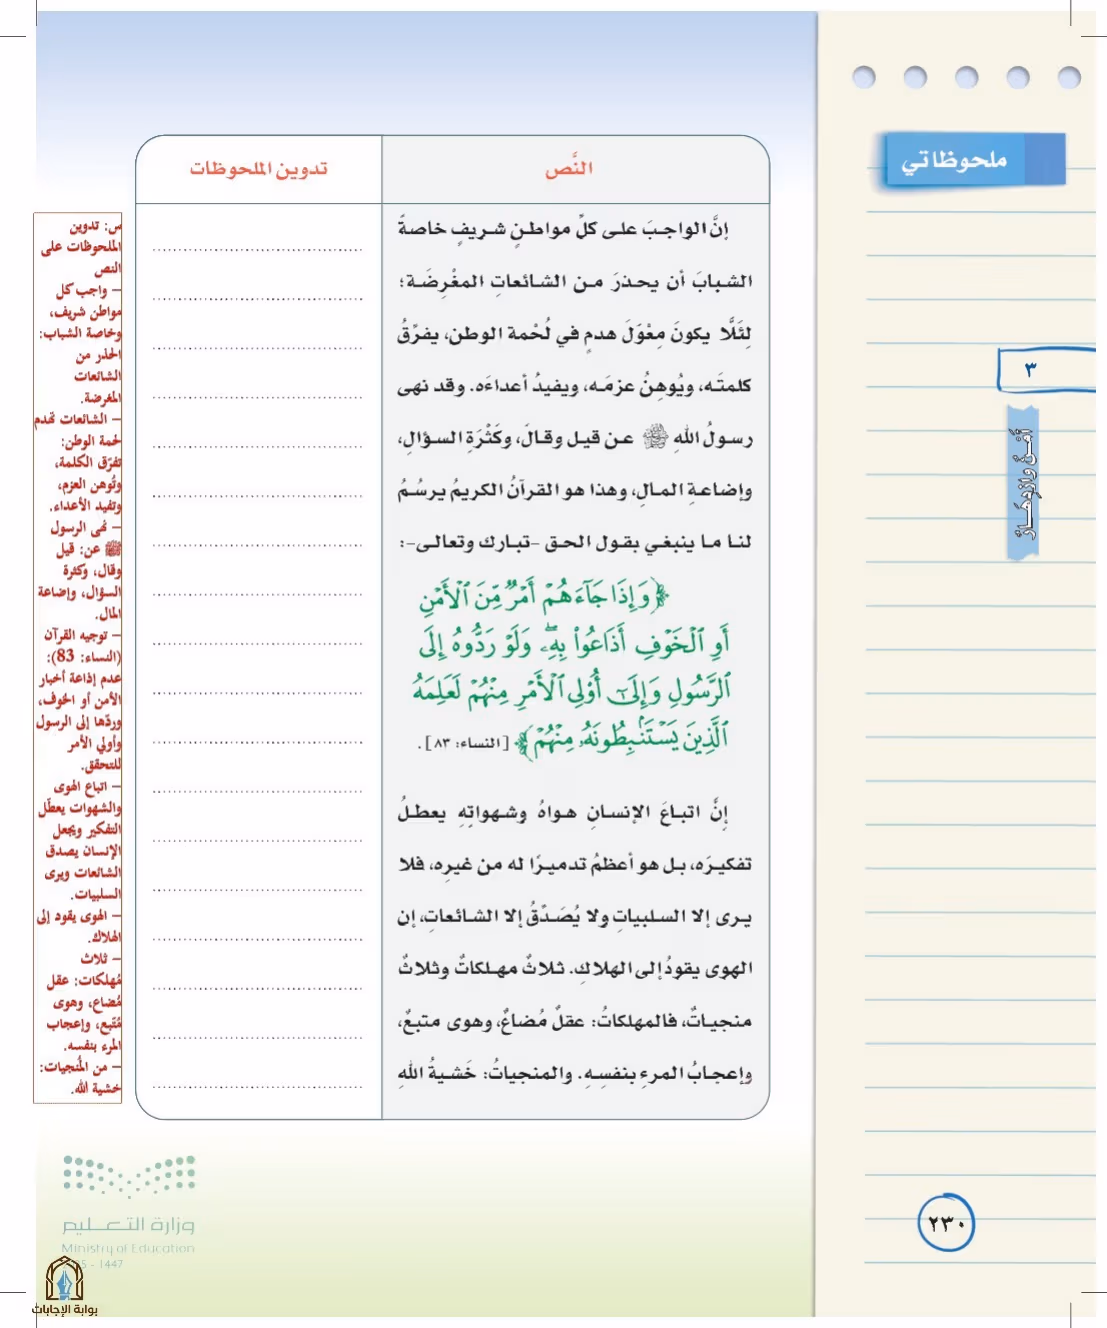 ملحوظاتي
٣
أَمْنٌ وَازْدِهَارٌ
النَّص
تدوين الملحوظات
إنَّ الواجبَ على كلِّ مواطنٍ شريفٍ خاصةً
الشبابَ أن يحذرَ من الشائعاتِ المغْرِضَة؛
لِئَلَّا يكونَ مِعْوَلَ هدمٍ في لُحْمة الوطن، يفرِّقُ
كلمتَه، ويُوهِنُ عزمَه، ويفيدُ أعداءَه. وقد نهى
رسولُ اللهِ ﷺ عن قيل وقالَ، وكَثْرَةِ السؤالِ،
وإضاعةِ المالِ، وهذا هو القرآنُ الكريمُ يرسُمُ
لنا ما ينبغي بقول الحق -تبارك وتعالى-:
﴿وَإِذَا جَآءَهُمۡ أَمۡرٞ مِّنَ ٱلۡأَمۡنِ
أَوِ ٱلۡخَوۡفِ أَذَاعُواْ بِهِۦۖ وَلَوۡ رَدُّوهُ إِلَى
ٱلرَّسُولِ وَإِلَىٰٓ أُوْلِي ٱلۡأَمۡرِ مِنۡهُمۡ لَعَلِمَهُ
ٱلَّذِينَ يَسۡتَنۢبِطُونَهُۥ مِنۡهُمۡ﴾ [النساء: ٨٣].
إنَّ اتباعَ الإنسانِ هواهُ وشهواتِهِ يعطلُ
تفكيرَه، بل هو أعظمُ تدميرًا له من غيرِه، فلا
يرى إلا السلبياتِ ولا يُصَدِّقُ إلا الشائعاتِ، إن
الهوى يقودُ إلى الهلاكِ. ثلاثٌ مهلكاتٌ وثلاثٌ
منجياتٌ، فالمهلكاتُ: عقلٌ مُضاعٌ، وهوى متبعٌ،
وإعجابُ المرءِ بنفسِهِ. والمنجياتُ: خَشيةُ اللهِ
س: تدوين
الملحوظات على
النص
– واجب كل
مواطن شريف،
وخاصة الشباب:
الحذر من
الشائعات
المغرضة.
– الشائعات تهدم
لحمة الوطن:
تفرّق الكلمة،
وتُوهن العزم،
وتفيد الأعداء.
– نهى الرسول
ﷺ عن: قيل
وقال، وكثرة
السؤال، وإضاعة
المال.
– توجيه القرآن
(النساء: 83):
عدم إذاعة أخبار
الأمن أو الخوف،
وردّها إلى الرسول
وأولي الأمر
للتحقق.
– اتباع الهوى
والشهوات يعطّل
التفكير ويجعل
الإنسان يصدق
الشائعات ويرى
السلبيات.
– الهوى يقود إلى
الهلاك.
– ثلاث
مُهلكات: عقل
مُضاع، وهوى
مُتّبع، وإعجاب
المرء بنفسه.
– من المُنجيات:
خشية الله.
وزارة التعـــليم
Ministry of Education
5 - 1447
بوابة الإجابات
٢٣٠